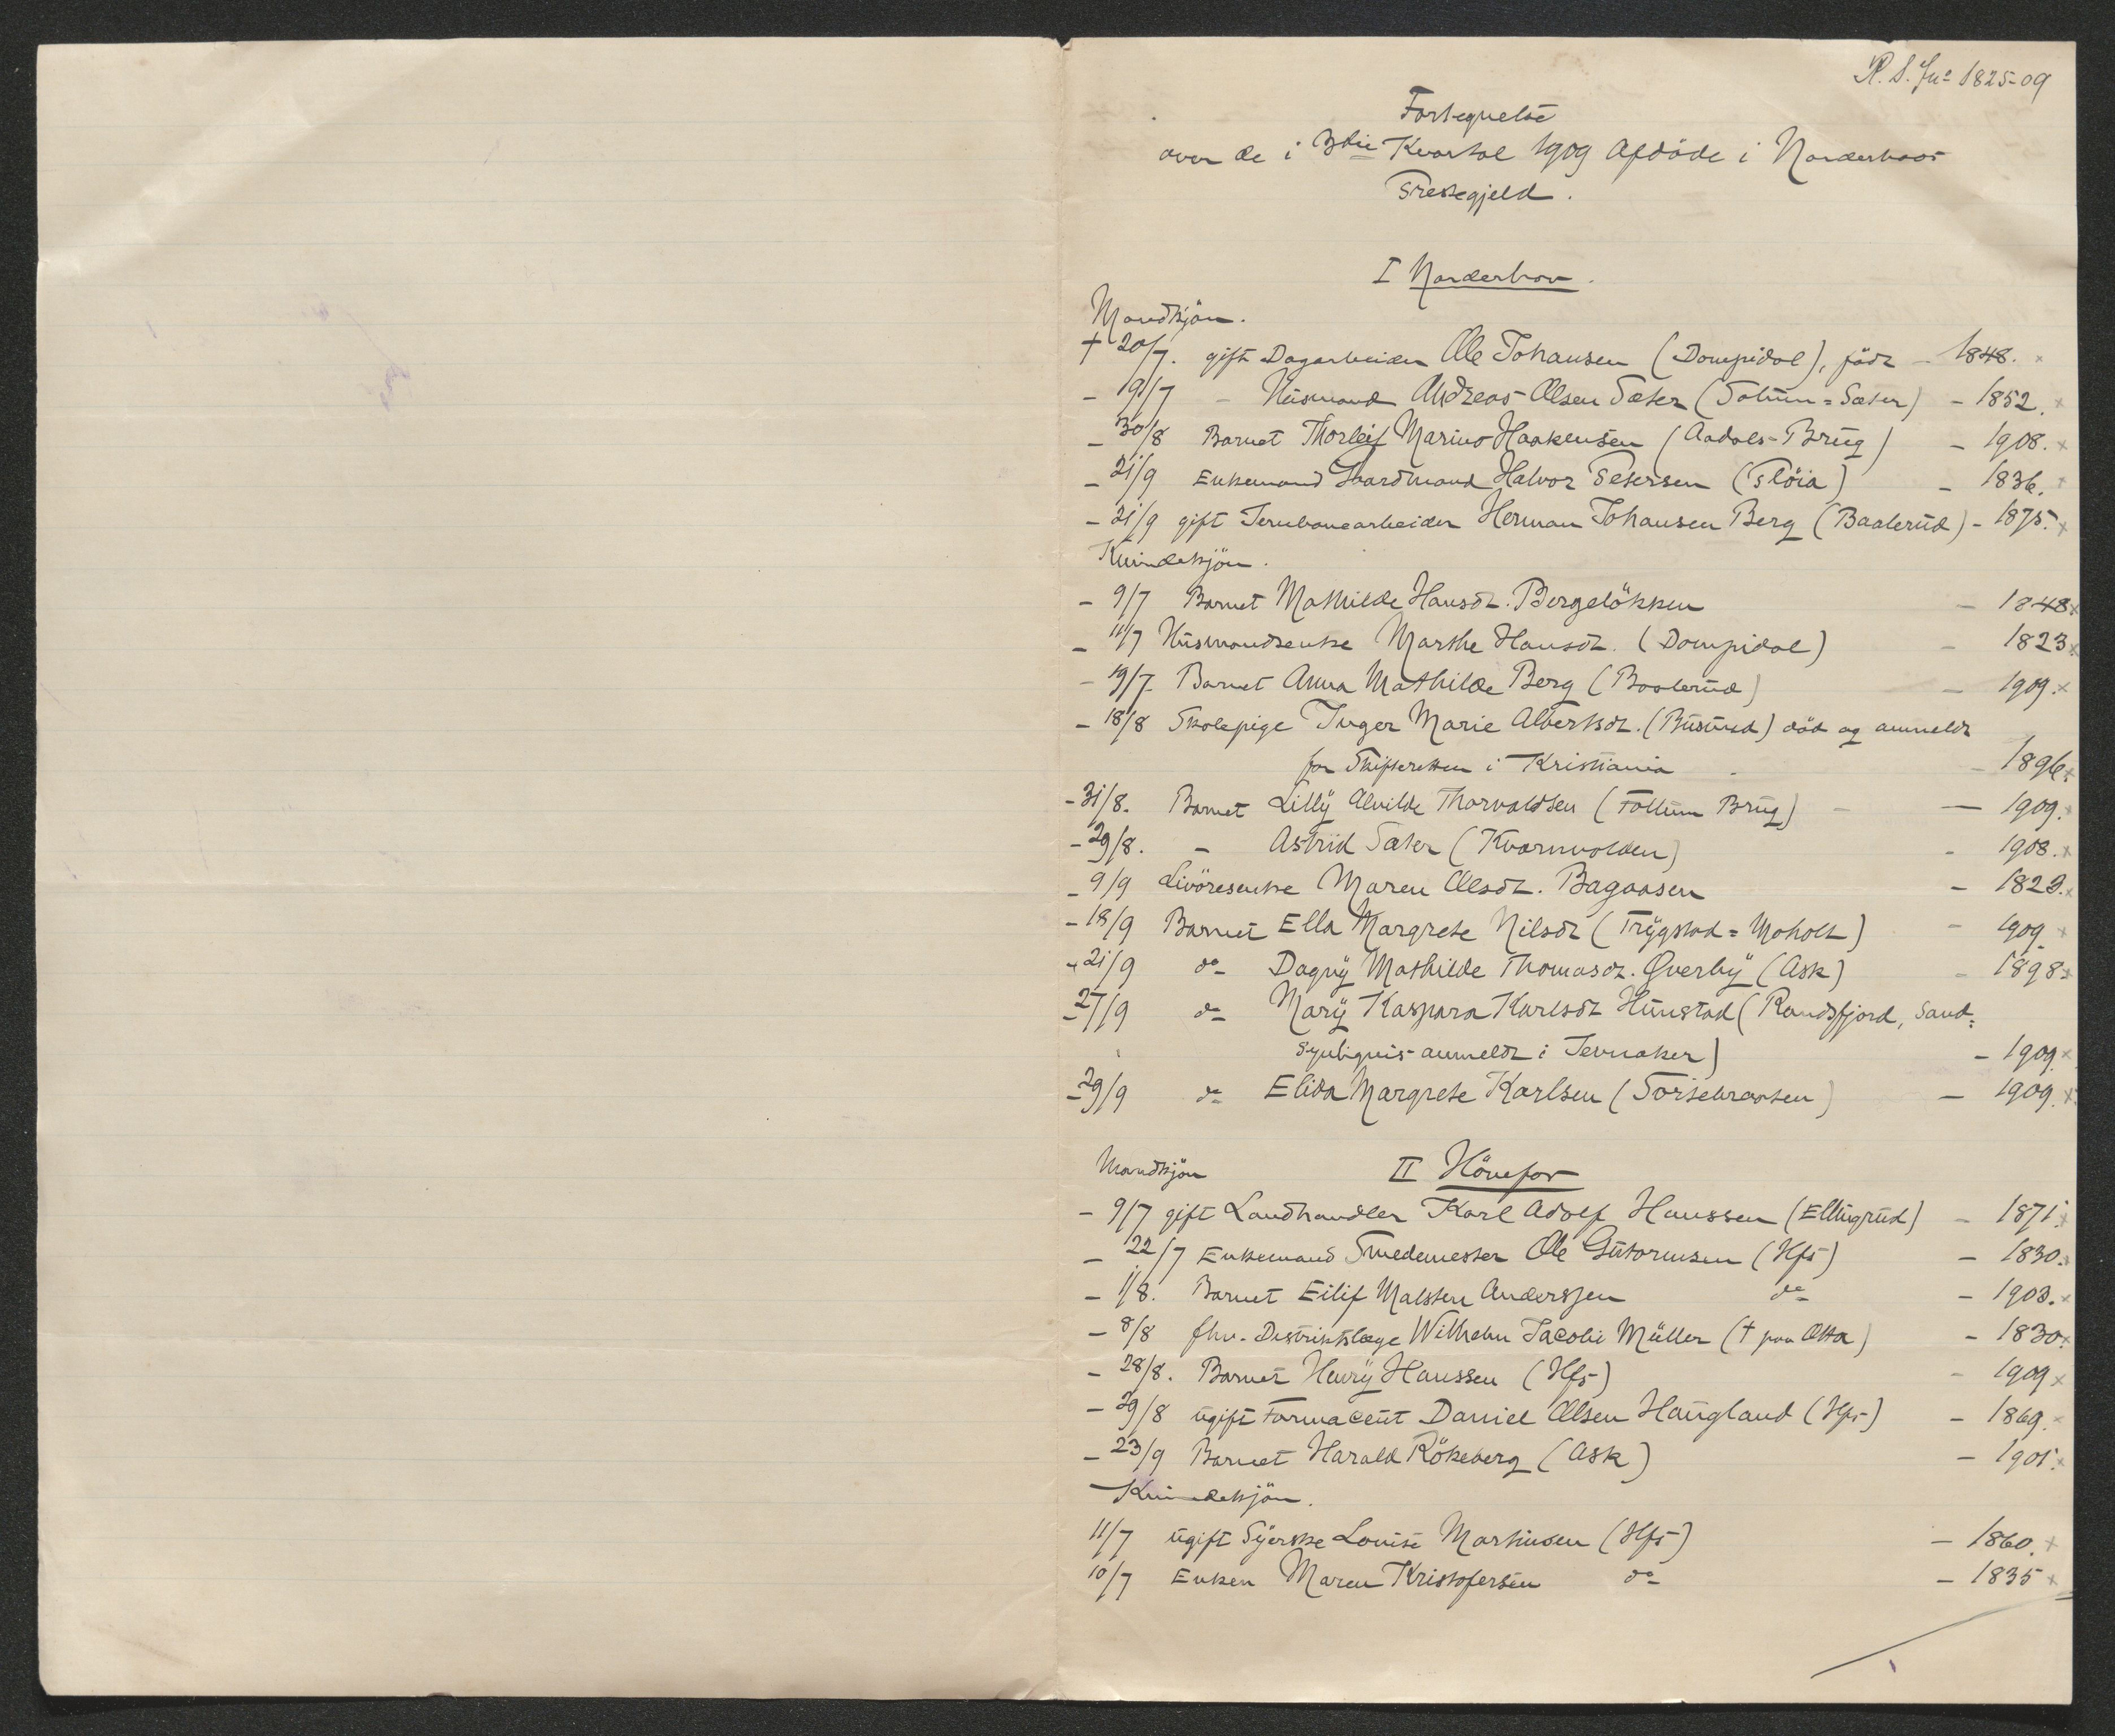 R. S. Jn: 1825-09
Fortegnelse
over de i 3die Kvartal 1909 Afdöde i Norderhovs
Prestegjeld.
I Norderhov.
Mandkjön.
+ 20/7. gift Dagarbeider Ole Johansen (Dompidal), födt - 1848.
- 19/7 - Husmand Andreas Olsen Sæter (Solum=Sæter) - 1852.
- 30/8 Barnet Thorleif Marino Haakensen (Aadals-Brug) - 1908.
- 21/9 Enkemand Gaardmand Halvor Petersen (Flöia) - 1836.
- 21/9 gift Jernbanearbeider Herman Johansen Berg (Baalerud) - 1875.
Kvindekjön.
- 9/7 Barnet Mathilde Hansdt. Bergelökken - 1848
- 11/7 Husmandsenke Marthe Hansdt. (Dompidal) - 1823.
- 19/7 Barnet Anna Mathilde Berg (Baalerud) - 1909.
- 18/8 Skolepige Inger Marie Albertsdt. (Busund) död og anmeldt
for Skifteretten i Kristiania - 1896.
- 31/8. Barnet Lilly Alvilde Thorvaldsen (Follum Brug) - 1909.
- 29/8. - Astrid Sæter (Kværnvolden) - 1908.
- 9/9 Livöresenke Maren Olsdt. Bagaasen - 1823.
- 18/9 Barnet Ella Margrete Nilsdt (Trygstad=Moholt) - 1909
- 21/9 do Dagny Mathilde Thomasdt. Qverby (Ask) - 1898.
- 27/9 do Mary Kaspara Karlsdt Hunstad (Randsfjord, sand=
synligvis anmeldt i Jevnaker) - 1909.
- 29/9 do Elida Margrete Karlsen (Torsebraaten) - 1909.
Mandkjön II Hönefos
- 9/7 gift Landhandler Karl Adolf Hanssen (Ellingrud) - 1871.
- 22/7 Enkemand Smedemester Ole Gutormsen (Hfs) - 1830.
- 1/8. Barnet Eilif Malsten Anderssen do - 1903.
- 8/8 fhv. Distriktslæge Wilhelm Jacobi Müller († paa Otta) - 1830.
- 28/8. Barnet Henry Hanssen (Hfs) - 1909
- 29/8 ugift Farmaceut Daniel Olsen Haugland (Hfs) - 1869.
- 23/9 Barnet Harald Rökeberg (Ask) - 1901.
Kvindekjön.
11/7 ugift Syerske Louise Martinsen (Hfs) - 1860.
10/7 Enken Maren Kristofersen do - 1835